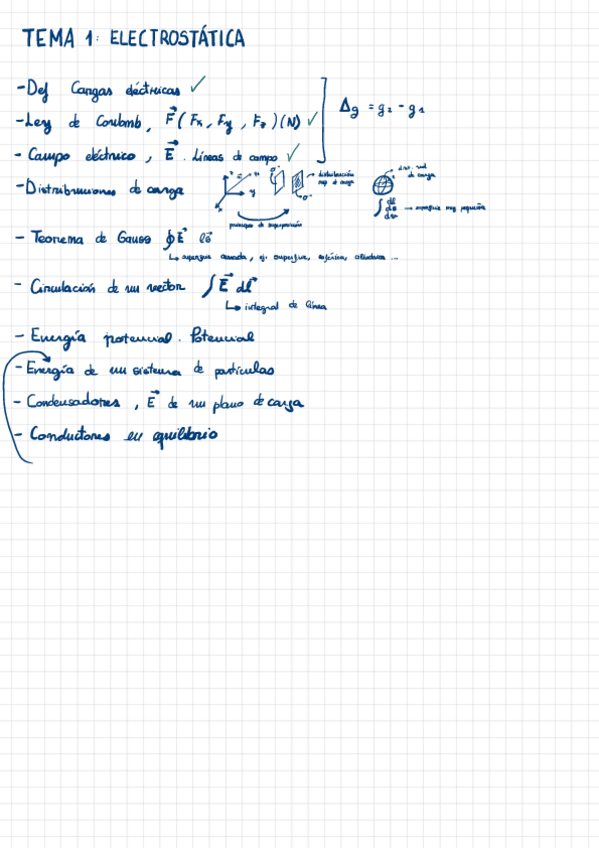 TEMA 1: ELECTROSTÁTICA
- Def Cargas eléctricas ✓
- Ley de Coulomb, F⃗ (Fx, Fy, Fz) (N) ✓
Δg = g₂ - g₁
- Campo eléctrico, E⃗. Líneas de campo ✓
- Distribuciones de carga
distribución sup. de carga
de carga
principio de superposición
dl
ds
dv
→ superficie muy pequeña
- Teorema de Gauss ∮E⃗
↳ superficie cerrada, ej. superficie, esférica, cilíndrica ...
- Circulación de un vector ∫E⃗ dl⃗
↳ integral de línea
- Energía potencial. Potencial
- Energía de un sistema de partículas
- Condensadores, E⃗ de un plano de carga
- Conductores en equilibrio